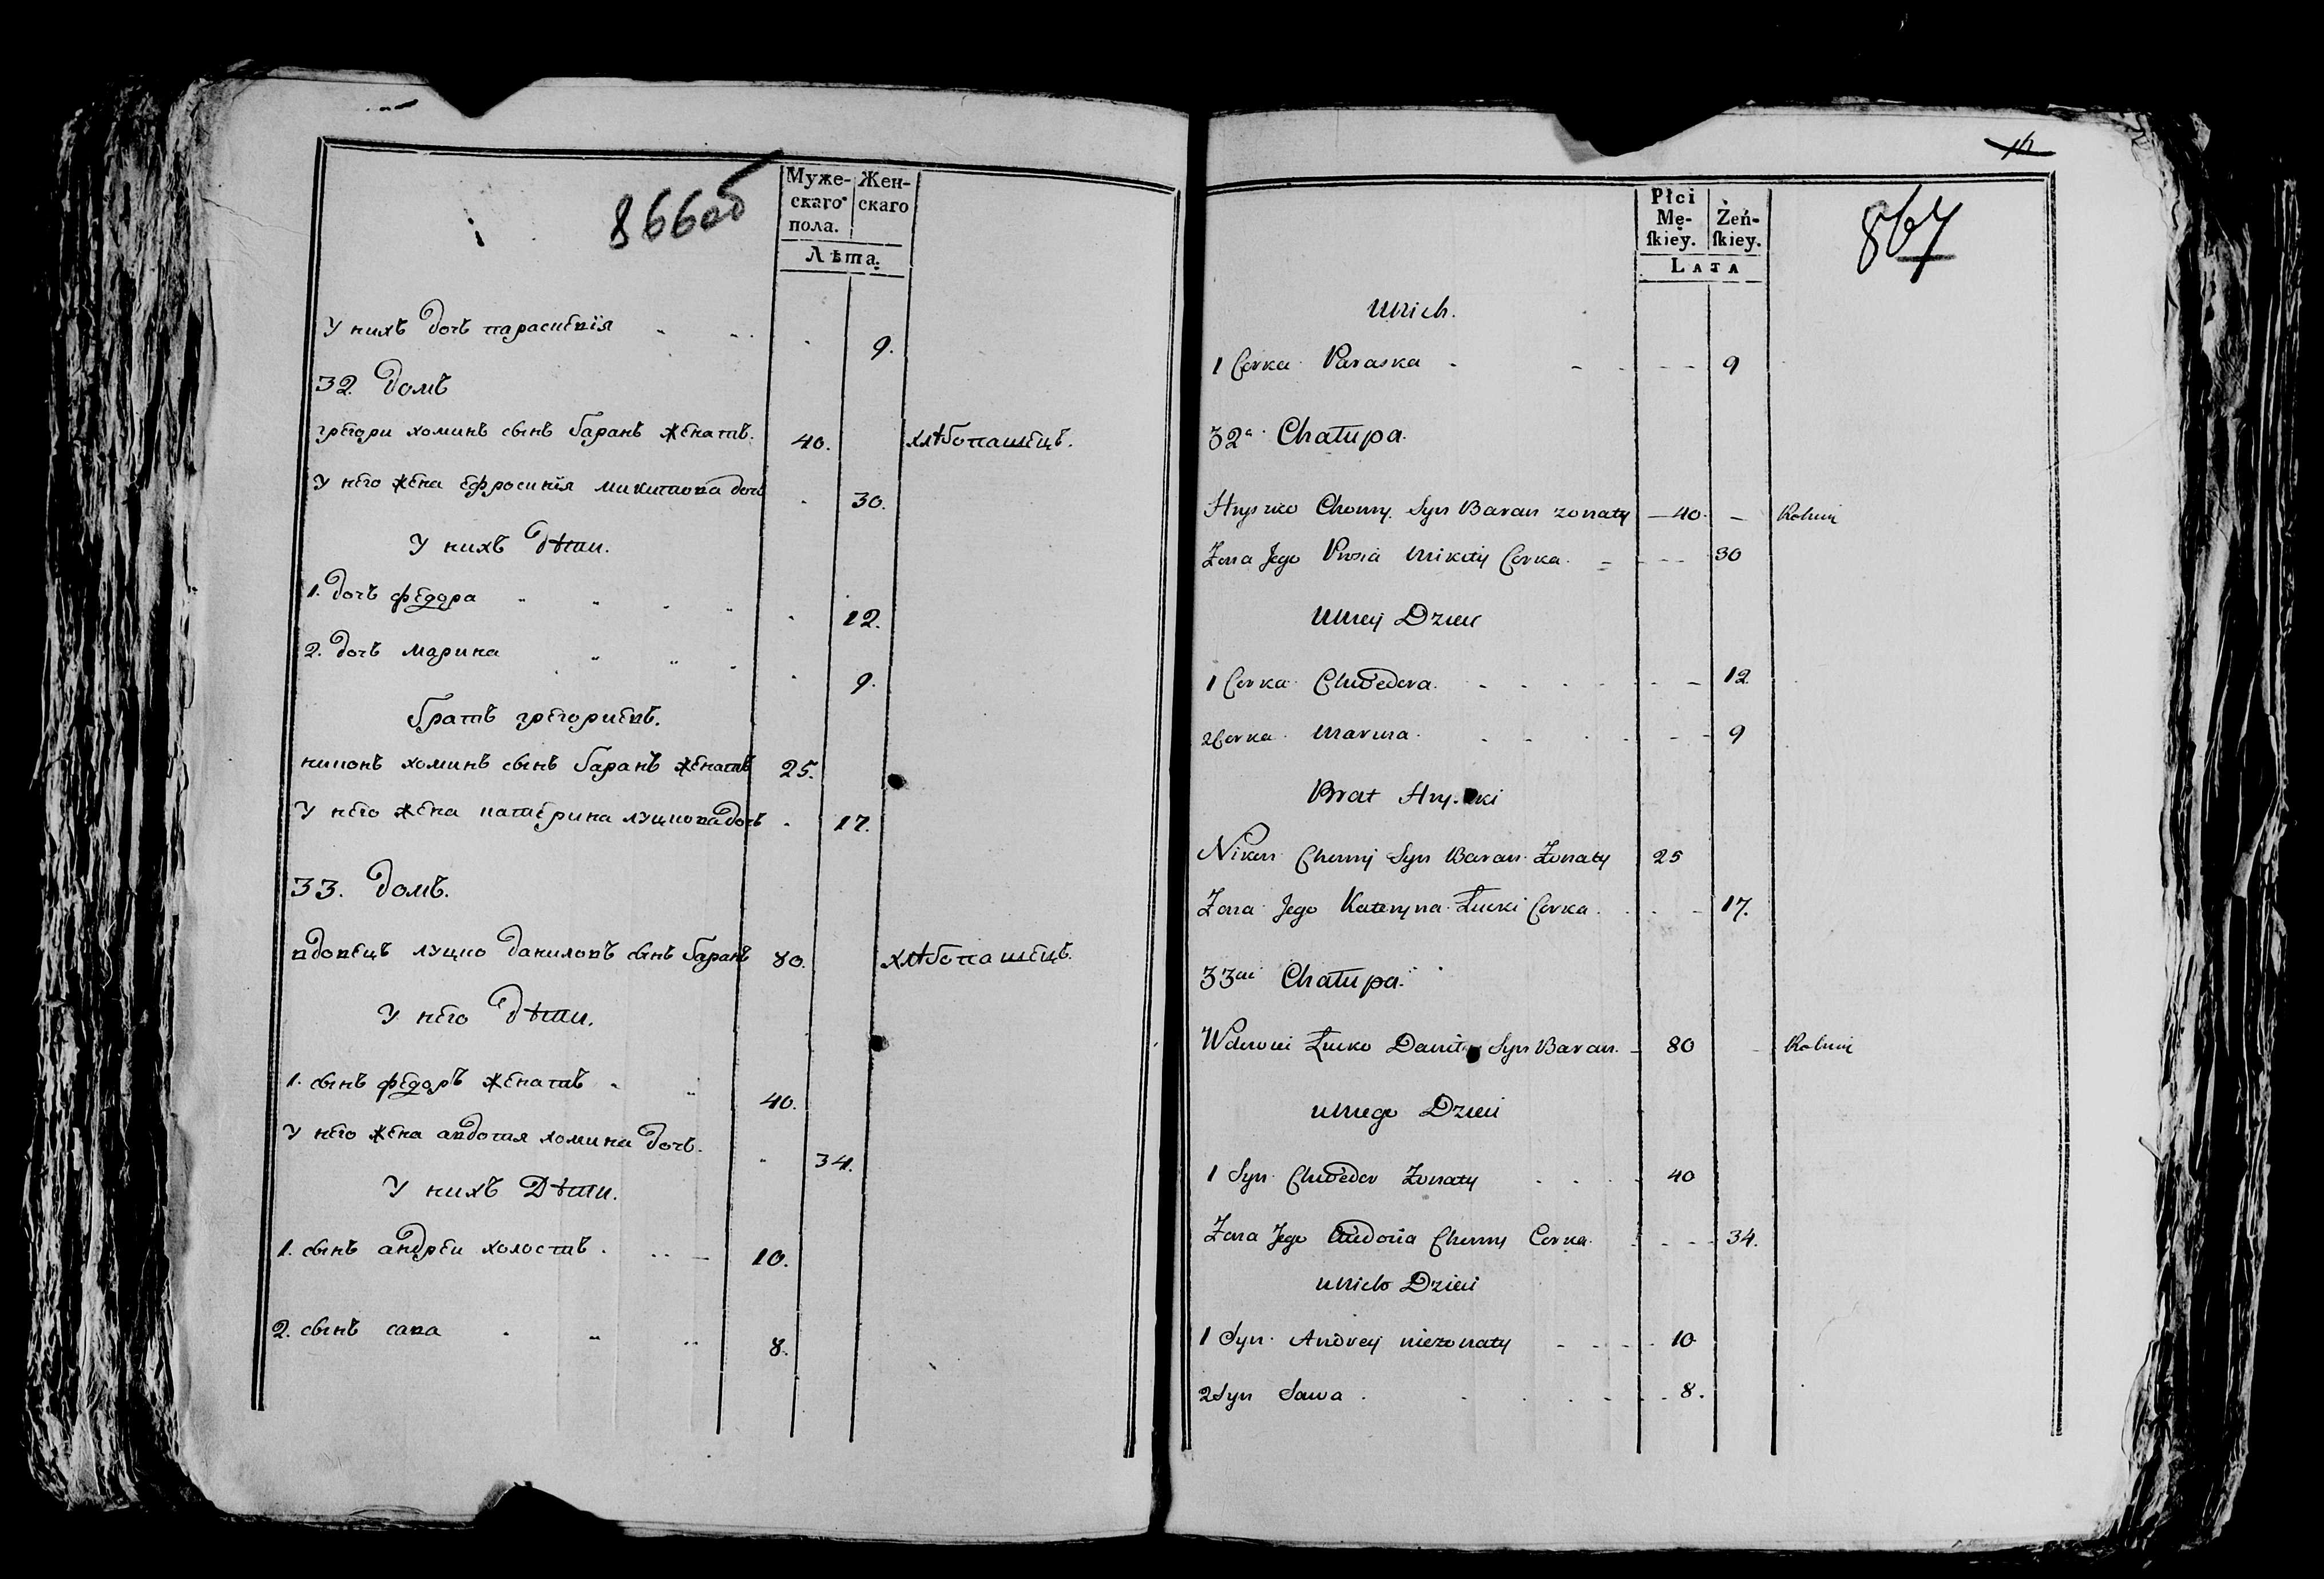 866об
Муже-
скаго
пола.
Жен-
скаго
Лѣта.
У нихъ дочь параскевія 9.
32. домъ
григори хоминъ сынъ баранъ женатъ. 40. хлѣбопашецъ.
У него жена ефросинія микитова дочь 30.
У нихъ дѣти.
1. дочь федора 12.
2. дочь марина 9.
братъ григориевъ.
никонъ хоминъ сынъ баранъ женатъ 25.
У него жена катерина луцкова дочь 17.
33. домъ.
вдовецъ луцко даниловъ сынъ баранъ 80. хлѣбопашецъ.
У него дѣти.
1. сынъ федоръ женатъ 40.
У него жена авдотия хомина дочь. 34.
У нихъ Дѣти.
1. сынъ андреи холостъ. 10.
2. сынъ сава 8.
867
Płci
Mę-
skiey.
Żeń-
skiey.
LATA
Unich.
1 Corka Paraska 9
32a Chałupa.
Hryszko Chomy Syn Baran zonaty 40 Rolnik
Żona Jego Prosia Mikity Corka. 30
Uniey Dzieci
1 Corka Chwedora. 12
2 Corka Maryna. 9
Brat Hryszki
Nikon Chomy Syn Baran Żonaty 25
Żona Jego Kateryna Łucki Corka. 17.
33cia Chałupa.
Wdowiec Łucko Daniły Syn Baran. 80 Rolnik
Uniego Dzieci
1 Syn Chwedor Żonaty 40
Żona Jego Audocia Chomy Corka 34.
Unich Dzieci
1 Syn Andrey niezonaty 10
2 Syn Sawa. 8.